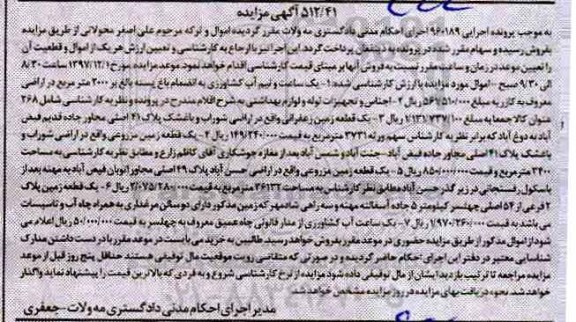 ۵۱۲/۴۱ آگهی مزایده
به موجب پرونده اجرایی ۹۶۰۱۸۹ اجرای احکام مدنی دادگستری مه ولات مقرر گردیده اموال و ترکه مرحوم علی اصغر محولاتی از طریق مزایده
بفروش رسیده و سهام مقرر شده در پرونده به ذینفعان پرداخت گردد. این اجرا نیز با ارجاع به کارشناسی و تعیین ارزش هر یک از اموال و قطعیت آن
را تعیین موعد در زمان و ساعت مقرر نسبت به فروش آنها بر مبنای قیمت کارشناسی اقدام خواهد نمود موعد مزایده مورخ ۱۳۹۷/۱۲/۱ ساعت ۸/۳۰
الی ۹/۳۰ صبح - اموال مورد مزایده با ارزش کارشناسی شده: ۱- یک ساعت و نیم آب کشاورزی به انضمام باغ پسته بالغ بر ۲۰۰۰ متر مربع در اراضی
معروف به کارر به مبلغ ۵۶۷/۵۱۰/۰۰۰ ریال ۲- اجناس و تجهیزات لوله و لوازم بهداشتی به شرح اقلام مندرج در پرونده و نظریه کارشناسی شامل ۲۶۸
عنوان کالا جمعا به مبلغ ۱/۱۳۱/۷۳۷/۱۰۰ ریال ۳- یک قطعه زمین زعفرانی واقع در اراضی شوراب و باغشک پلاک ۴۱ اصلی مجاور جاده قدیم فیض
آباد به دوغ آباد که برابر نظر به کارشناس سهم ورثه ۳۷۳۱ متر مربع به قیمت ۱۴۹/۲۴۰/۰۰۰ ریال ۴- یک قطعه زمین مزروعی واقع در اراضی شوراب و
باغشک پلاک ۴۱ اصلی مجاور جاده فیض آباد - جنت آباد و شمس آباد بعد از مغازه جوشکاری آقای کاظم زارع و مطابق نظریه کارشناسی به مساحت
۳۴۰۰ متر مربع به قیمت ۸۵۰/۰۰۰/۰۰۰ ریال ۵- یک قطعه زمین مزروعی واقع در اراضی حسن آباد پلاک ۴۹ اصلی مجاور اتوبان فیض آباد به مهنه بعد از
باسکول رفسنجانی در زیر گذر حسن آباد مطابق نظر کارشناس به مساحت ۲۶۱۳۲ متر مربع به قیمت ۲/۰۷۵/۲۸۰/۰۰۰ ریال ۶- یک قطعه زمین پلاک
۲ فرعی از ۵۴ اصلی چهلسر کیلومتر ۵ جاده آسفالته مهنه و سه راهی شادمهر که زمین مذکور دارای دو سالن مرغداری به همراه چاه آب و تاسیسات
می باشد به قیمت ۱/۹۷۰/۲۶۰/۰۰۰ ریال ۷- یک ساعت آب کشاورزی از مدار قانونی چاه عمیق معروف به چهلسر به قیمت ۵۰/۰۰۰/۰۰۰ ریال اعلام می
شود از اموال مذکور از طریق مزایده حضوری در موعد مقرر بفروش خواهد رسید. طالبین به خرید می بایست در موعد مقرر با در دست داشتن مدارک
شناسایی معتبر در دفتر این اجرای احکام حاضر گردیده و در صورتی که متقاضی رویت موقعیت مال توقیفی هستند حداقل پنج روز قبل از موعد
مزایده مراجعه تا ترکیب بازدید ایشان از مال توقیفی داده شود مزایده از نرخ کارشناسی شروع و به فردی که بالاترین قیمت را پیشنهاد نماید واگذار
خواهد شد. نحوه دریافت بهای مزایده در روز مزایده مشخص خواهد شد.
مدیر اجرای احکام مدنی دادگستری مه ولات - جعفری